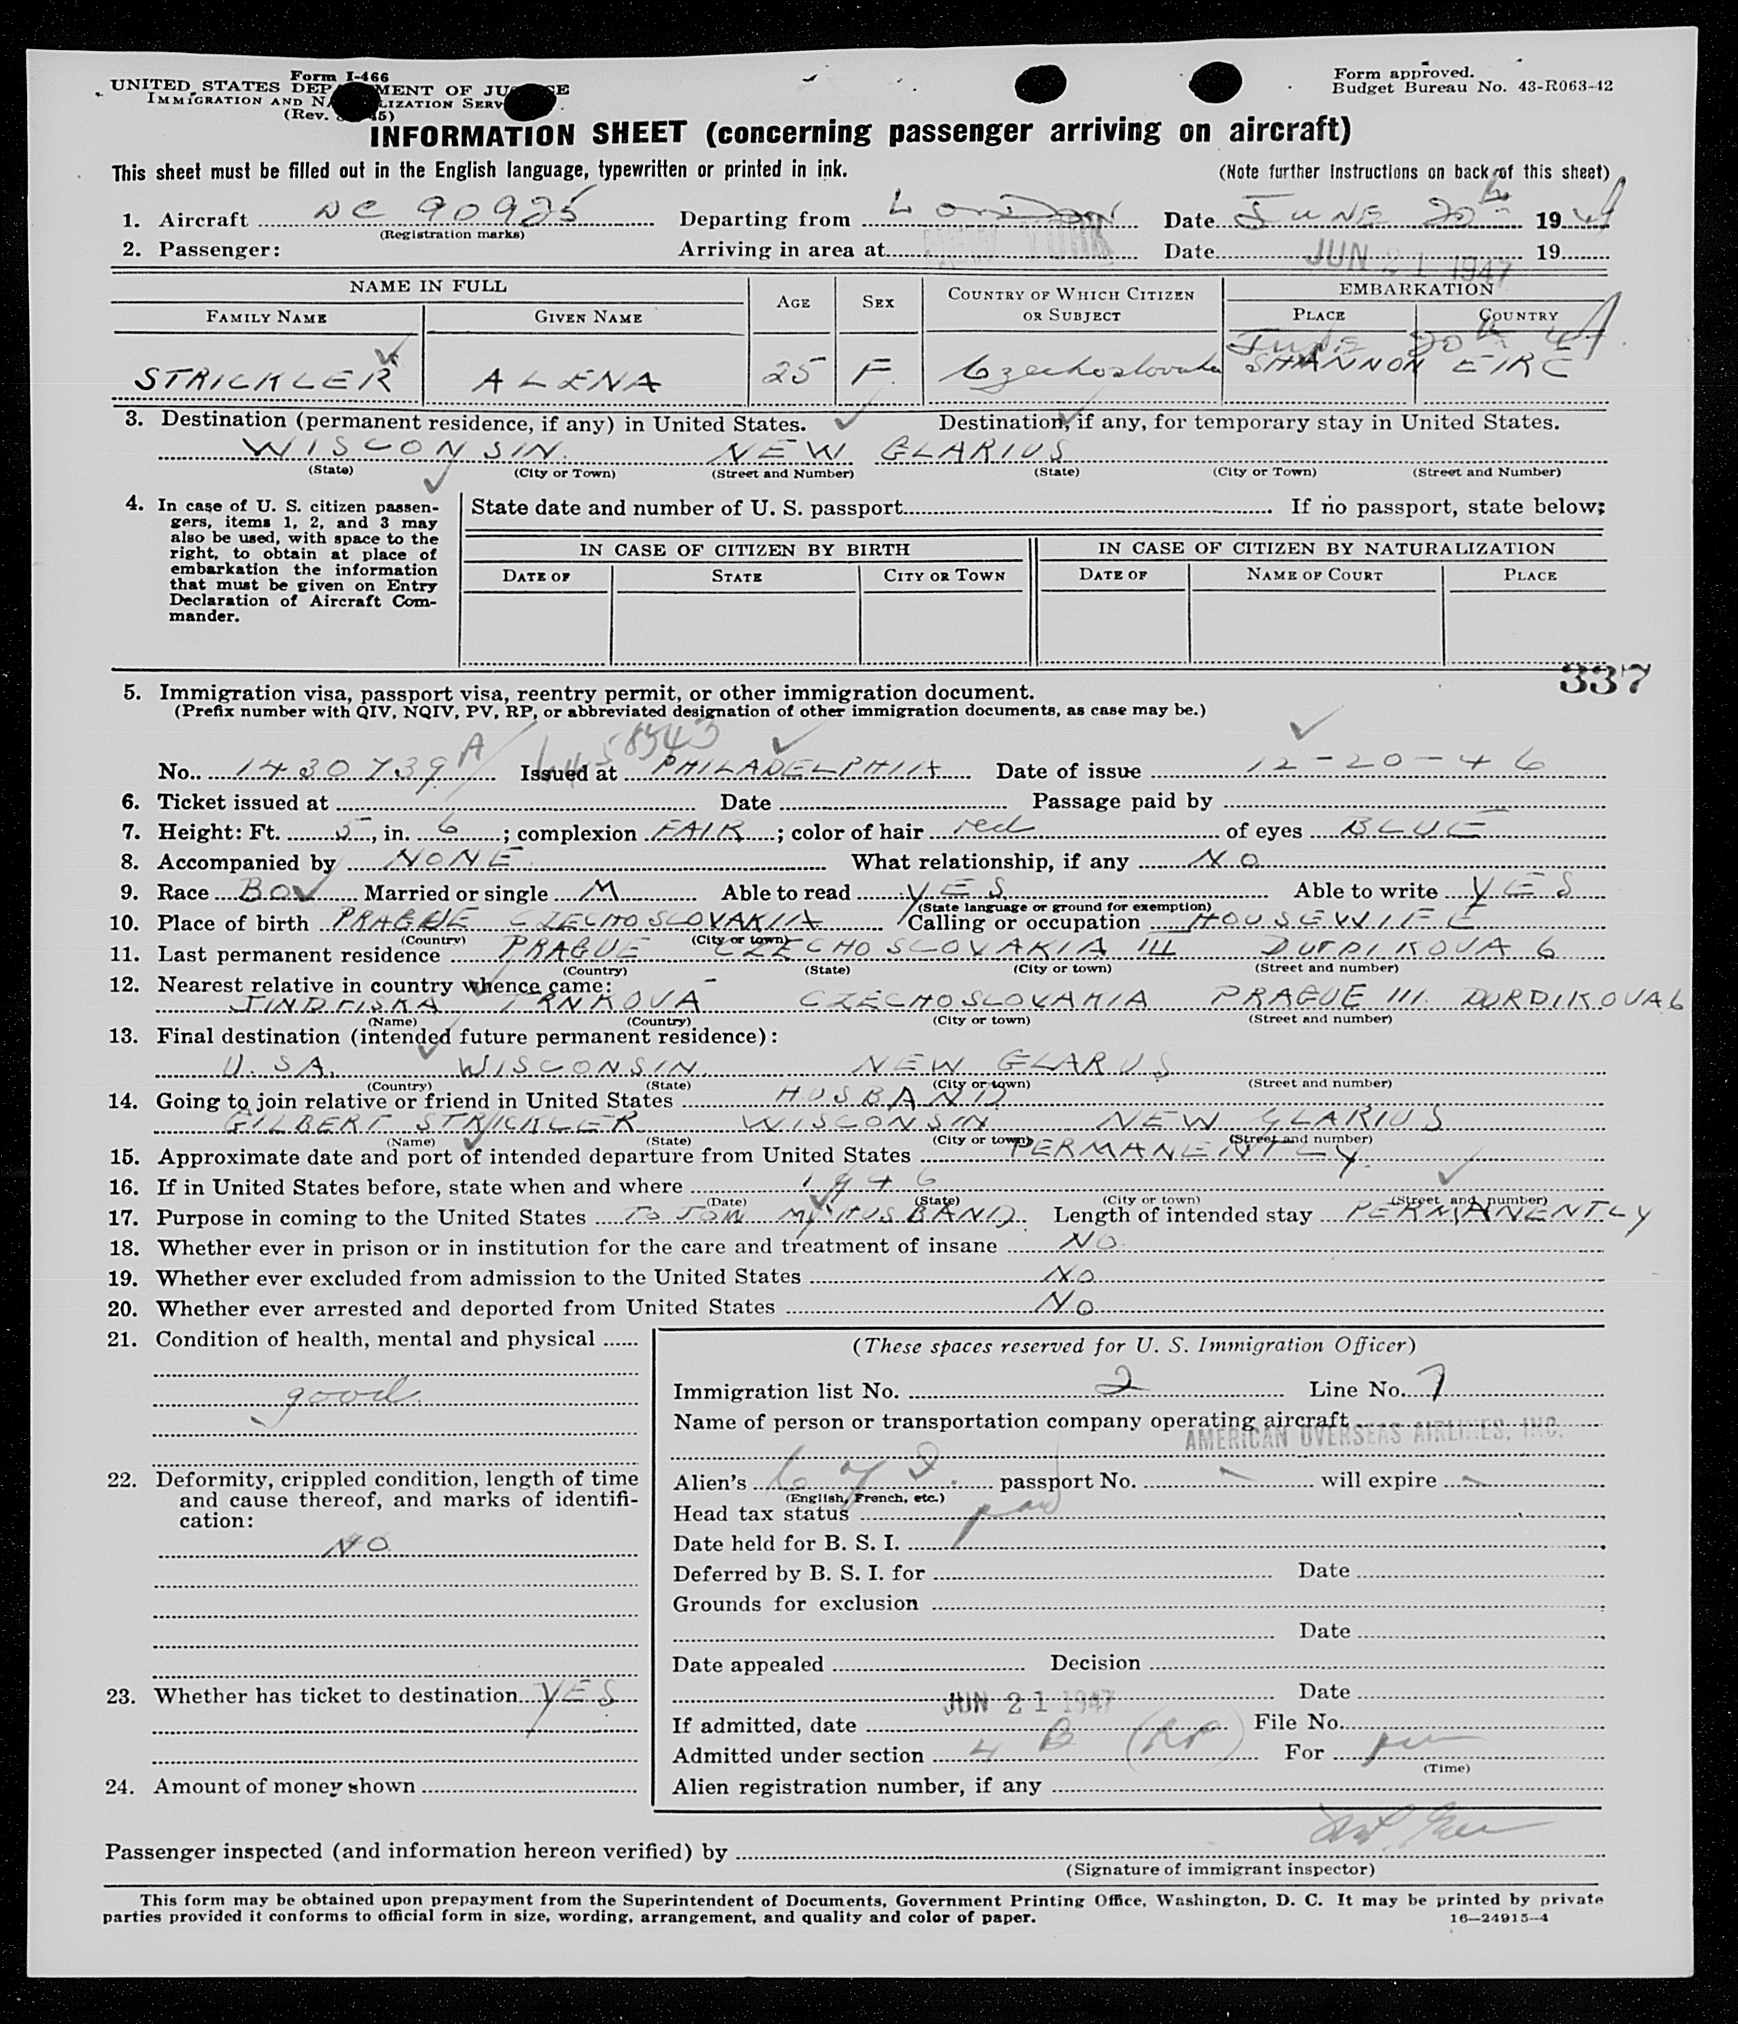 Form I-466
UNITED STATES DEP MENT OF JU E
IMMIGRATION AND N LIZATION SERV
(Rev. 45)
Form approved.
Budget Bureau No. 43-R063-42
INFORMATION SHEET (concerning passenger arriving on aircraft)
This sheet must be filled out in the English language, typewritten or printed in ink. (Note further instructions on back of this sheet)
1. Aircraft NC 90925 Departing from LONDON Date JUNE 20th 19
(Registration marks)
2. Passenger: Arriving in area at NEW YORK Date JUN 21 1947 19
NAME IN FULL AGE SEX COUNTRY OF WHICH CITIZEN OR SUBJECT EMBARKATION
FAMILY NAME GIVEN NAME PLACE COUNTRY
June 20th 47
STRICKLER ALENA 25 F Czechoslovakia SHANNON EIRE
3. Destination (permanent residence, if any) in United States. Destination, if any, for temporary stay in United States.
WISCONSIN. NEW GLARIUS
(State) (City or Town) (Street and Number) (State) (City or Town) (Street and Number)
4. In case of U. S. citizen passen-
gers, items 1, 2, and 3 may
also be used, with space to the
right, to obtain at place of
embarkation the information
that must be given on Entry
Declaration of Aircraft Com-
mander.
State date and number of U. S. passport If no passport, state below:
IN CASE OF CITIZEN BY BIRTH IN CASE OF CITIZEN BY NATURALIZATION
DATE OF STATE CITY OR TOWN DATE OF NAME OF COURT PLACE
337
5. Immigration visa, passport visa, reentry permit, or other immigration document.
(Prefix number with QIV, NQIV, PV, RP, or abbreviated designation of other immigration documents, as case may be.)
58543
No. 1430739 A Issued at PHILADELPHIA Date of issue 12-20-46
6. Ticket issued at Date Passage paid by
7. Height: Ft. 5, in. 6; complexion FAIR; color of hair red of eyes BLUE
8. Accompanied by NONE What relationship, if any NO
9. Race BOV Married or single M Able to read YES Able to write YES
(State language or ground for exemption)
10. Place of birth PRAGUE CZECHOSLOVAKIA Calling or occupation HOUSEWIFE
(Country) (City or town)
11. Last permanent residence PRAGUE CZECHOSLOVAKIA III DURDIKOVA 6
(Country) (State) (City or town) (Street and number)
12. Nearest relative in country whence came:
JINDRISKA TRNKOVA CZECHOSLOVAKIA PRAGUE III. DURDIKOVA 6
(Name) (Country) (City or town) (Street and number)
13. Final destination (intended future permanent residence):
U.SA. WISCONSIN. NEW GLARUS
(Country) (State) (City or town) (Street and number)
14. Going to join relative or friend in United States HUSBAND
GILBERT STRICKLER WISCONSIN NEW GLARIUS
(Name) (State) (City or town) (Street and number)
15. Approximate date and port of intended departure from United States PERMANENTLY.
16. If in United States before, state when and where 1946
(Date) (State) (City or town) (Street and number)
17. Purpose in coming to the United States TO JOIN MY HUSBAND. Length of intended stay PERMANENTLY
18. Whether ever in prison or in institution for the care and treatment of insane NO
19. Whether ever excluded from admission to the United States NO
20. Whether ever arrested and deported from United States NO
21. Condition of health, mental and physical
good
22. Deformity, crippled condition, length of time
and cause thereof, and marks of identifi-
cation:
NO
23. Whether has ticket to destination YES
24. Amount of money shown
(These spaces reserved for U. S. Immigration Officer)
Immigration list No. 2 Line No. 7
Name of person or transportation company operating aircraft
AMERICAN OVERSEAS AIRLINES, INC.
Alien's passport No. will expire
(English, French, etc.)
Head tax status paid
Date held for B. S. I.
Deferred by B. S. I. for Date
Grounds for exclusion
Date
Date appealed Decision
JUN 21 1947 Date
If admitted, date File No.
Admitted under section 4 B (RP) For per
(Time)
Alien registration number, if any
Passenger inspected (and information hereon verified) by
(Signature of immigrant inspector)
This form may be obtained upon prepayment from the Superintendent of Documents, Government Printing Office, Washington, D. C. It may be printed by private
parties provided it conforms to official form in size, wording, arrangement, and quality and color of paper. 16—24915-4